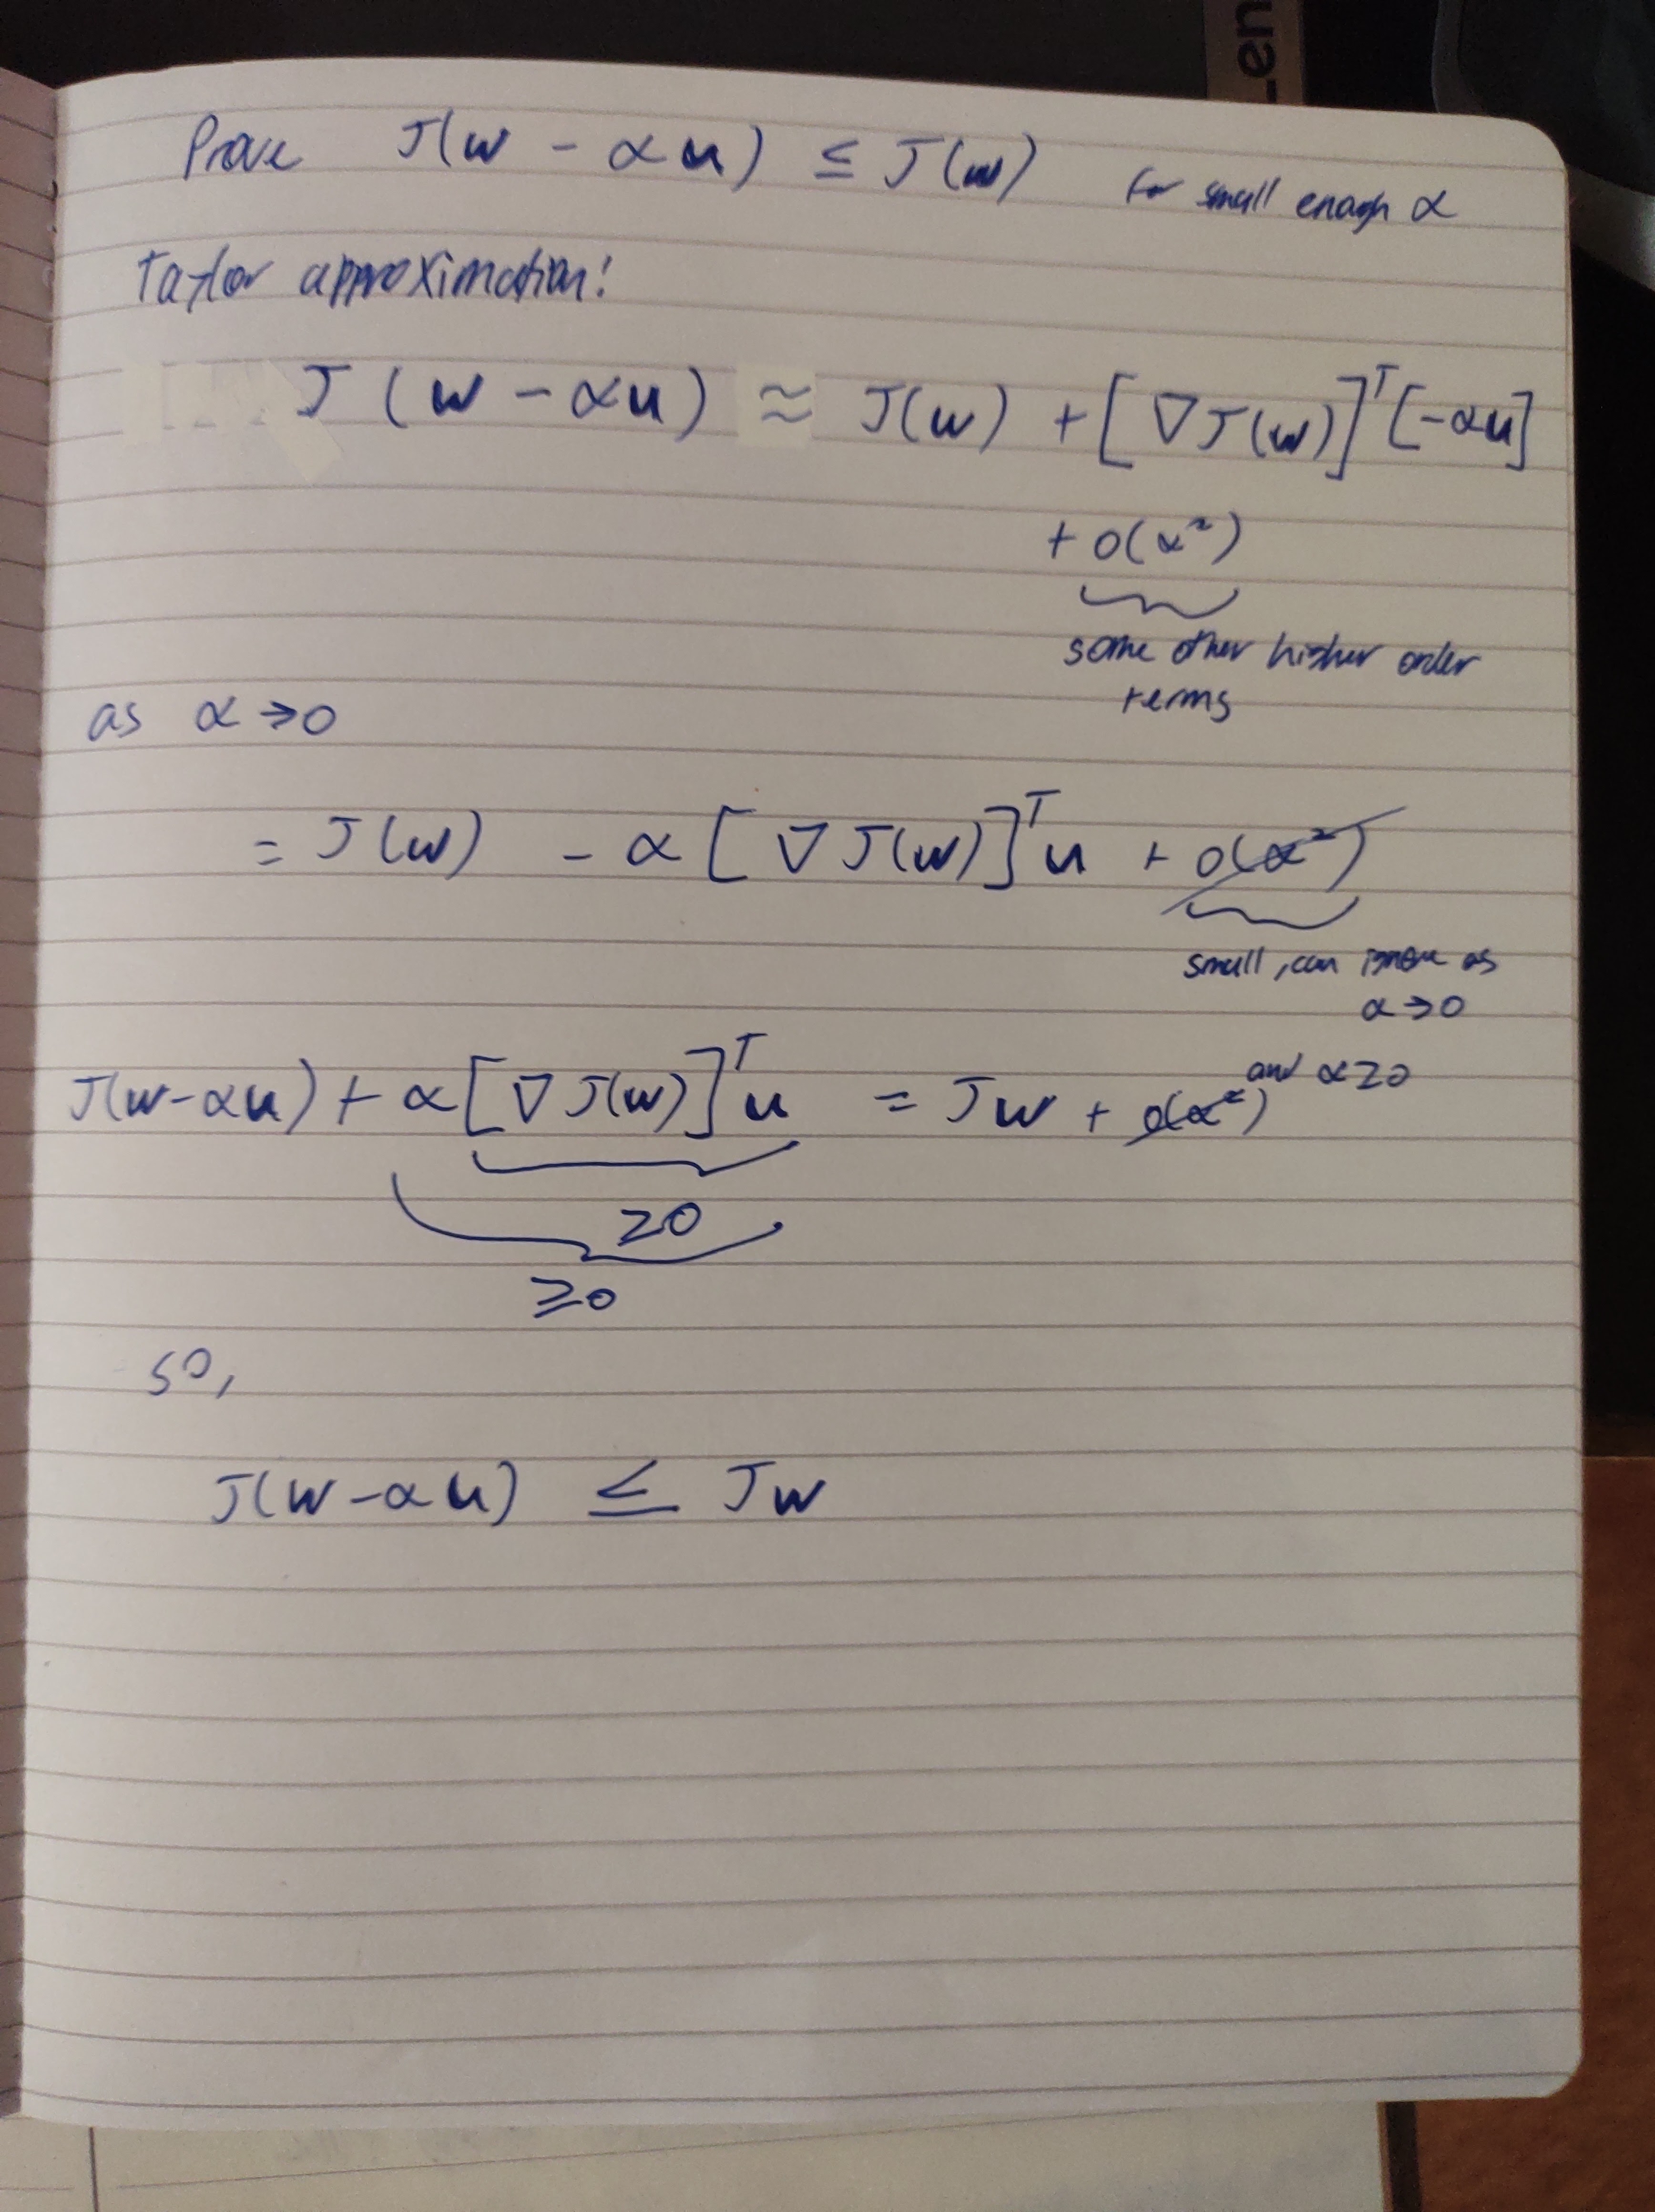 Prove J(w - αu) ≤ J(w) for small enough α
Taylor approximation!
J(w - αu) ≈ J(w) + [∇J(w)]ᵀ[-αu]
+ O(α²)
some other higher order
terms
as α → 0
= J(w) - α[∇J(w)]ᵀu + O(α²)
small, can ignore as
α → 0
and α ≥ 0
J(w-αu) + α[∇J(w)]ᵀu = Jw + O(α²)
≥0
≥0
so,
J(w-αu) ≤ Jw